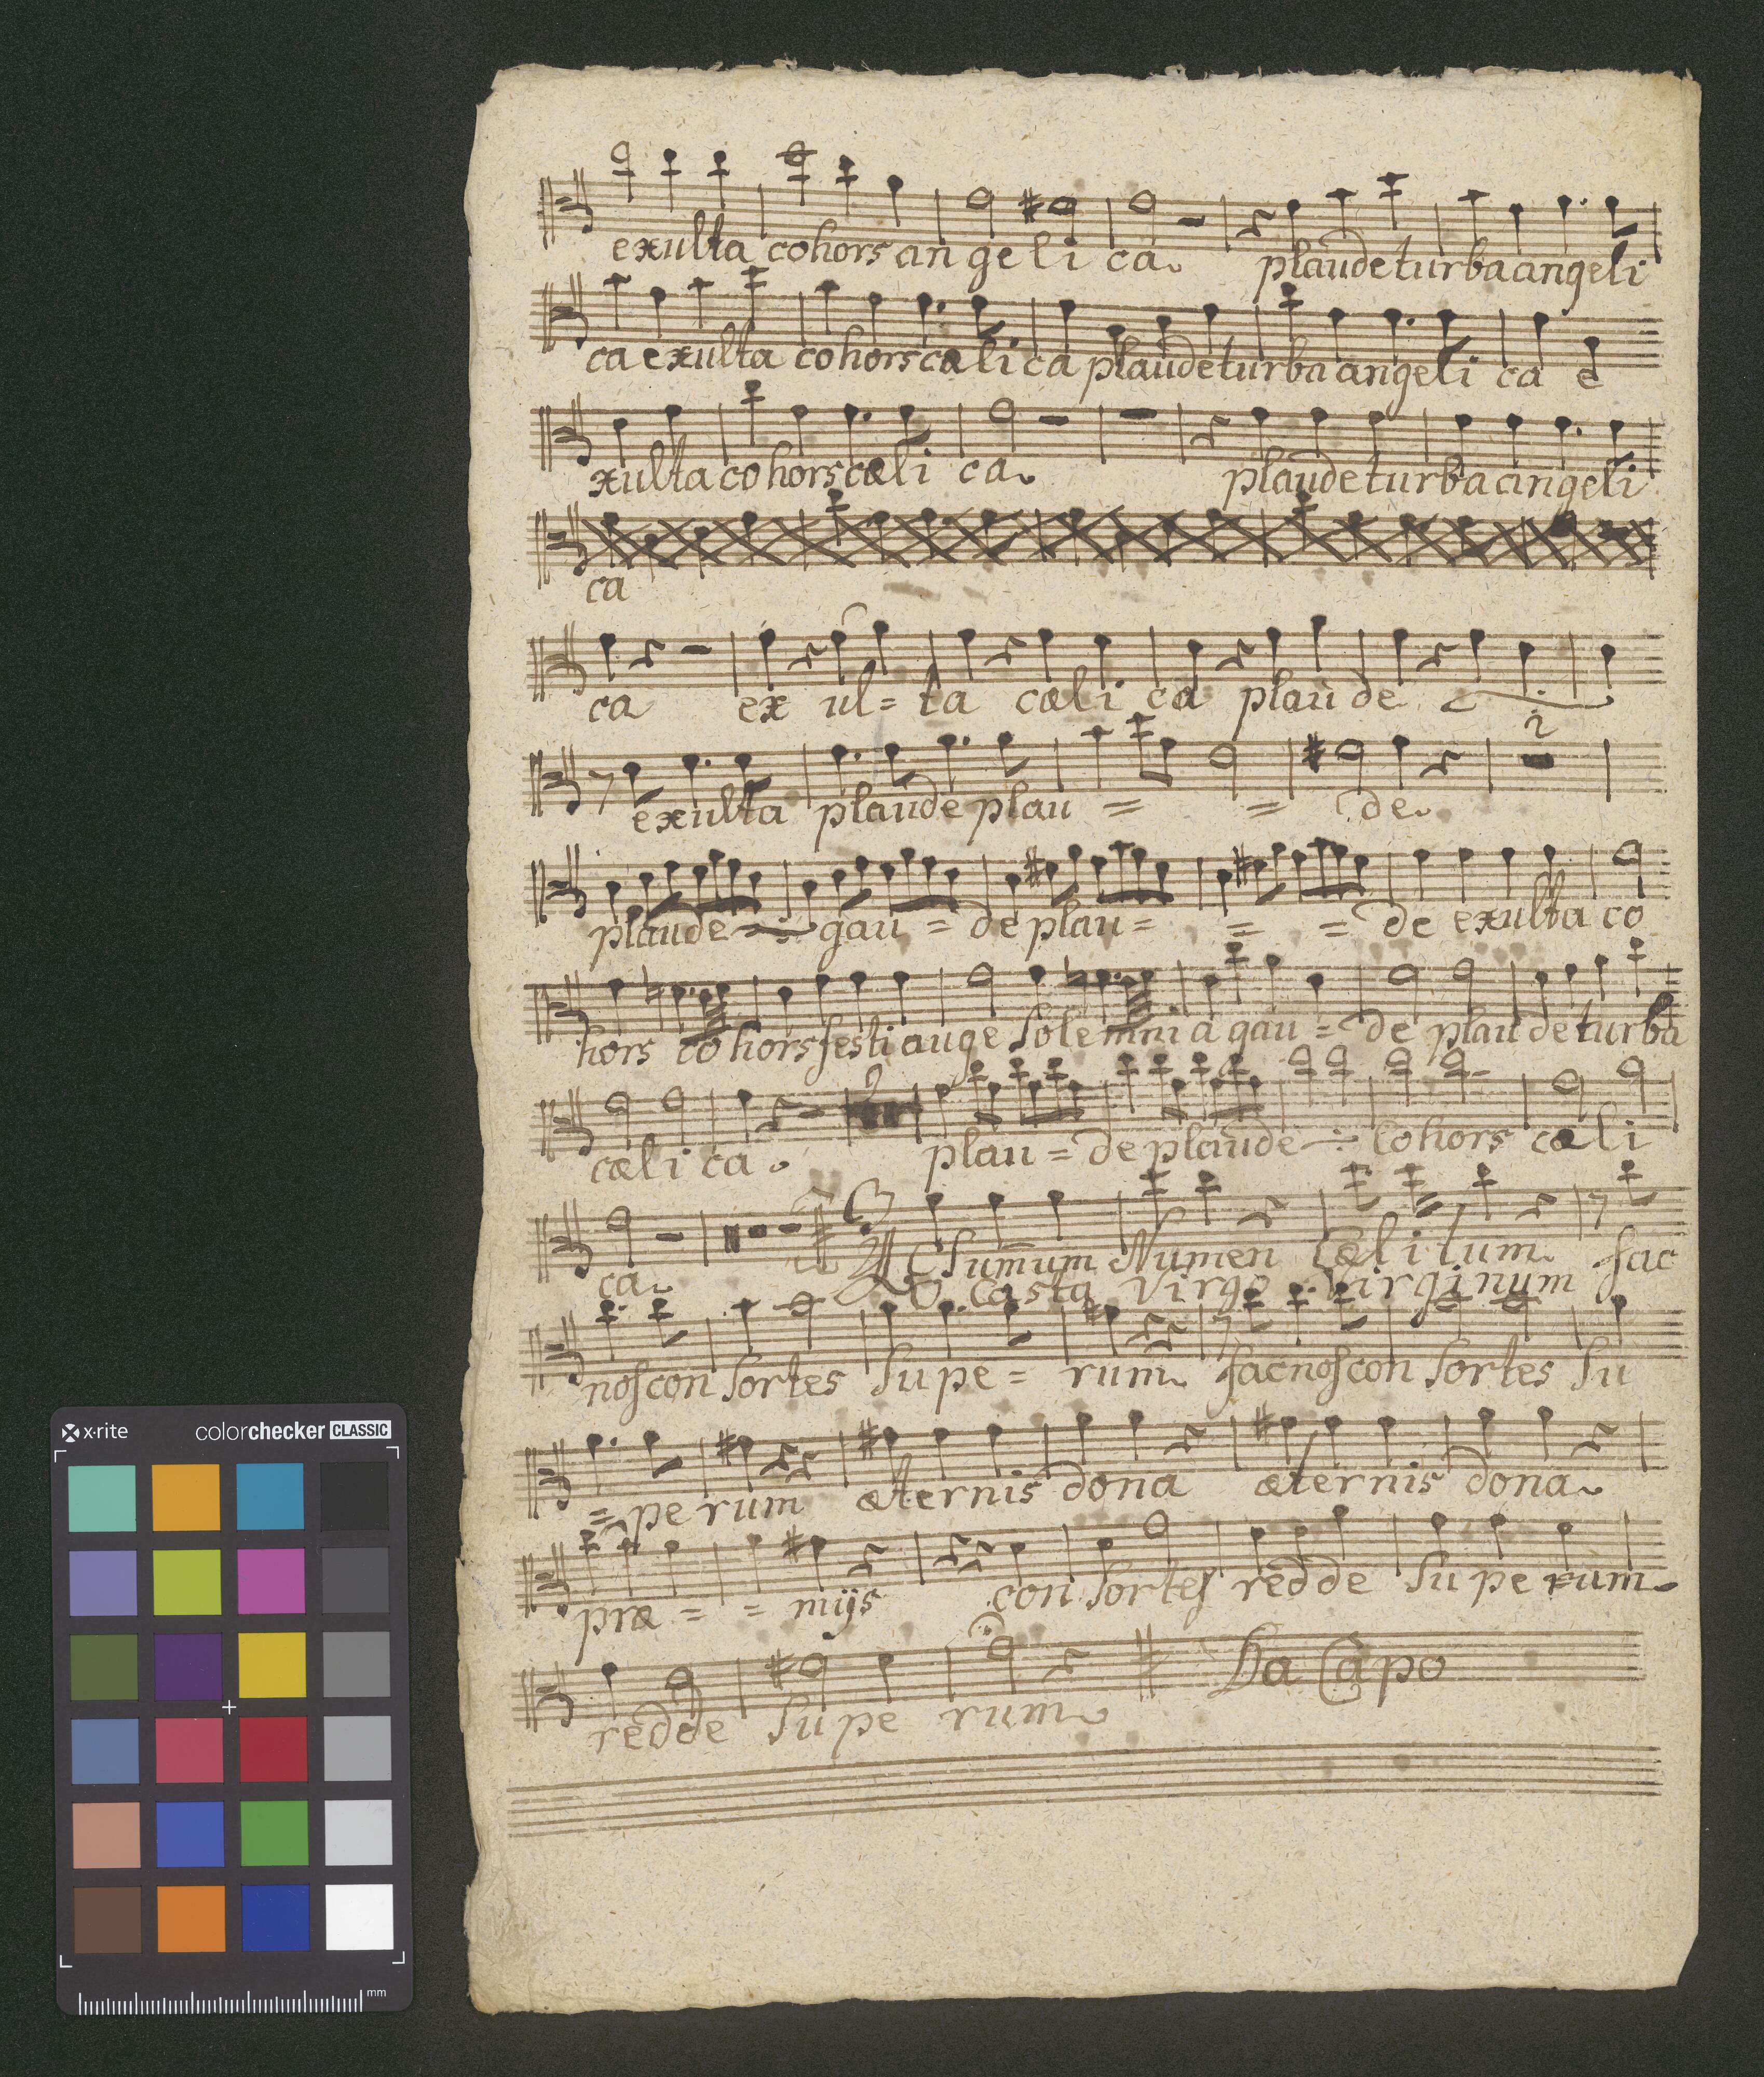 exulta cohors an ge li ca.   plaude turba angeli
ca exulta cohors cæli ca plaude turba angeli ca e
xulta cohors cæli ca.   plaude turba angeli
ca
ca ex ul = ta cæli ca plau de
2
exulta plaude plau = = de.
plaude gau = de plau = = = de exulta co
hors co hors festi auge solemni a gau = de plau de turba
2
cæli ca.   plau = de plaude cohors cæli
ca.   Summum Numen Cælitum fac
O casta Virgo Virginum
nos con sortes supe = rum fac nos con sortes su
= pe rum æternis dona æternis dona
præ = = mijs con sortes redde superum
redde supe rum   Da Capo
x-rite colorchecker CLASSIC
mm